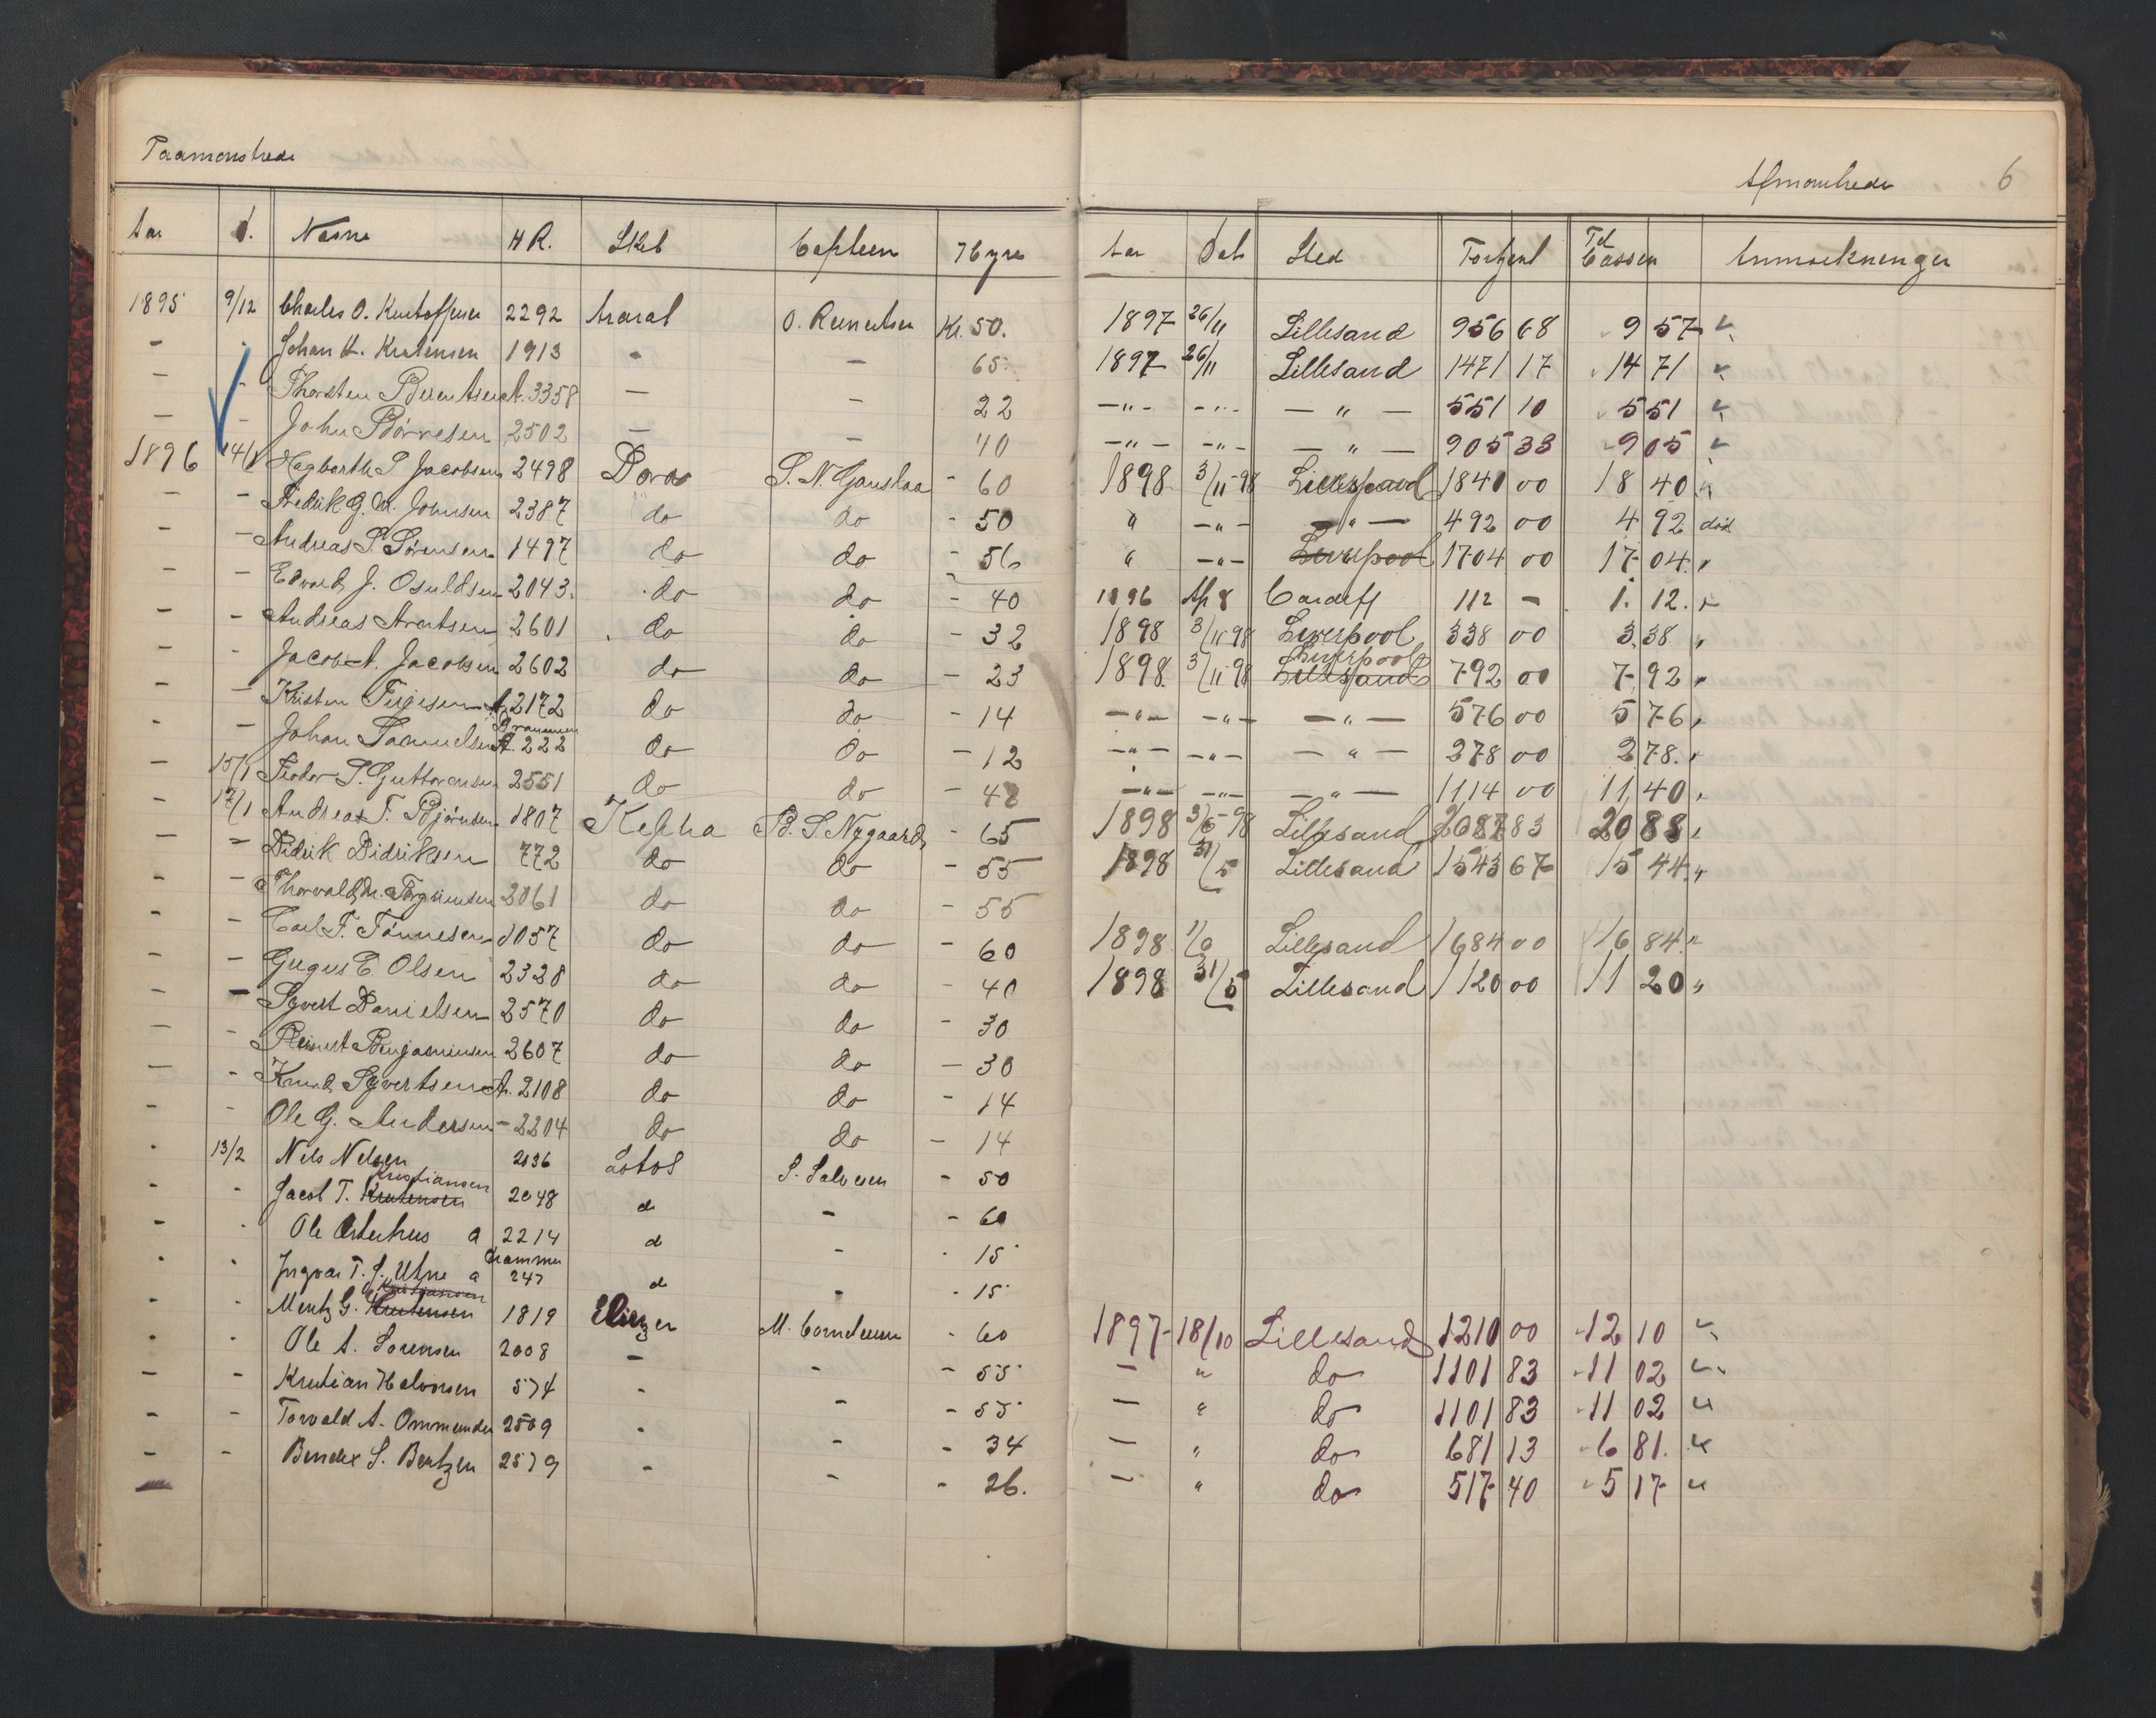 Paamønstrede
Afmønstrede 6
Aar d. Navne H R. Skib Captein Hyre Aar Dat Sted Fortjent Til Cassen Anmærkninger
1895 9/12 Charles O. Kristoffersen 2292 Ararat O. Reinertsen Kr. 50. 1897 26/11 Lillesand 956 68 957 "
- - Johan K. Kristensen 1913 - - 65 1897 26/11 Lillesand 1471 17 1471 "
- - Thorsten Berentsen A. 3358 - - 22 -"- -"- -"- 551 10 551 "
- - John Børresen 2502 - - 40 -"- -"- -"- 905 33 905 "
1896 14/1 Hagbarth S. Jacobsen 2498 Dora S. N. Ganshaa - 60 1898 3/11-98 1840 00 1840 "
- - Fredrik G. M. Johnsen 2387 do do - 50 " -"- -"- 492 00 492 død
- - Andreas S. Sørensen 1497 do do - 56 " -"- Liverpool 1704 00 1704. "
- - Edvard J. Osuldsen 2043. do do - 40 1896 Ap 8 Cardiff 112 - 1.12. "
- - Andreas Arntsen 2601 do do - 32 1898 3/11 98 Liverpool 338 00 338 "
- - Jacob A. Jacobsen 2602 do do - 23 1898. 3/11 98 Liverpool Lillesand 792 00 792 "
- - Kristen Terjesen A. 2172 do do - 14 -"- -"- -"- 576 00 576 "
- - Johan Samuelsen Drammen A. 222 do do - 12 -"- -"- -"- 278 00 278. "
- 15/1 Teodor S. Guttormsen 2551 do do - 48 -"- -"- -"- 1114 00 1140 "
- 17/1 Andreas T. Bjørnsen 1807 Kepha B. S. Nygaard - 65 1898 3/6-98 Lillesand 2087 83 2088 "
- - Didrik Didriksen 772 do do - 55 1898 31/5 Lillesand 1543 67 1544. "
- - Thorvald M. Torgrimsen 2061 do do - 55
- - Carl F. Tønnesen 1057 do do - 60 1898 1/6 Lillesand 1684 00 1684. "
- - Gregus E. Olsen 2328 do do - 40 1898 31/5 Lillesand 1120 00 1120 "
- - Syvert Danielsen 2570 do do - 30
- - Reinert Benjaminsen 2607 do do - 30
- - Knud Syvertsen A. 2108 do do - 14
- - Ole G. Andersen - 2204 do do - 14
- 13/2 Nils Nelsen 2036 Lotos S. Salvesen - 50
- - Jacob T. Kristensen Kristiansen 2048 d - - 60
- - Ole Osterhus a 2214 d - - 15
- - Ingvar T. J. Utne a Drammen 247 d - - 15
- - Mentz G. Kristensen Kristiansen 1819 Eliezer M. Corneliusen - 60 1897 18/10 Lillesand 1210 00 1210 "
Ole A. Sørensen 2008 - - - 55 - " do 1101 83 1102 "
- - Kristian Halvorsen 574 - - - 55 - " do 1101 83 1102 "
- - Torvald A. Ommundsen 2509 - - - 34 - " do 681 13 681. "
- - Bendix S. Bentzen 2579 - - - 26. - " do 517 40 517 "